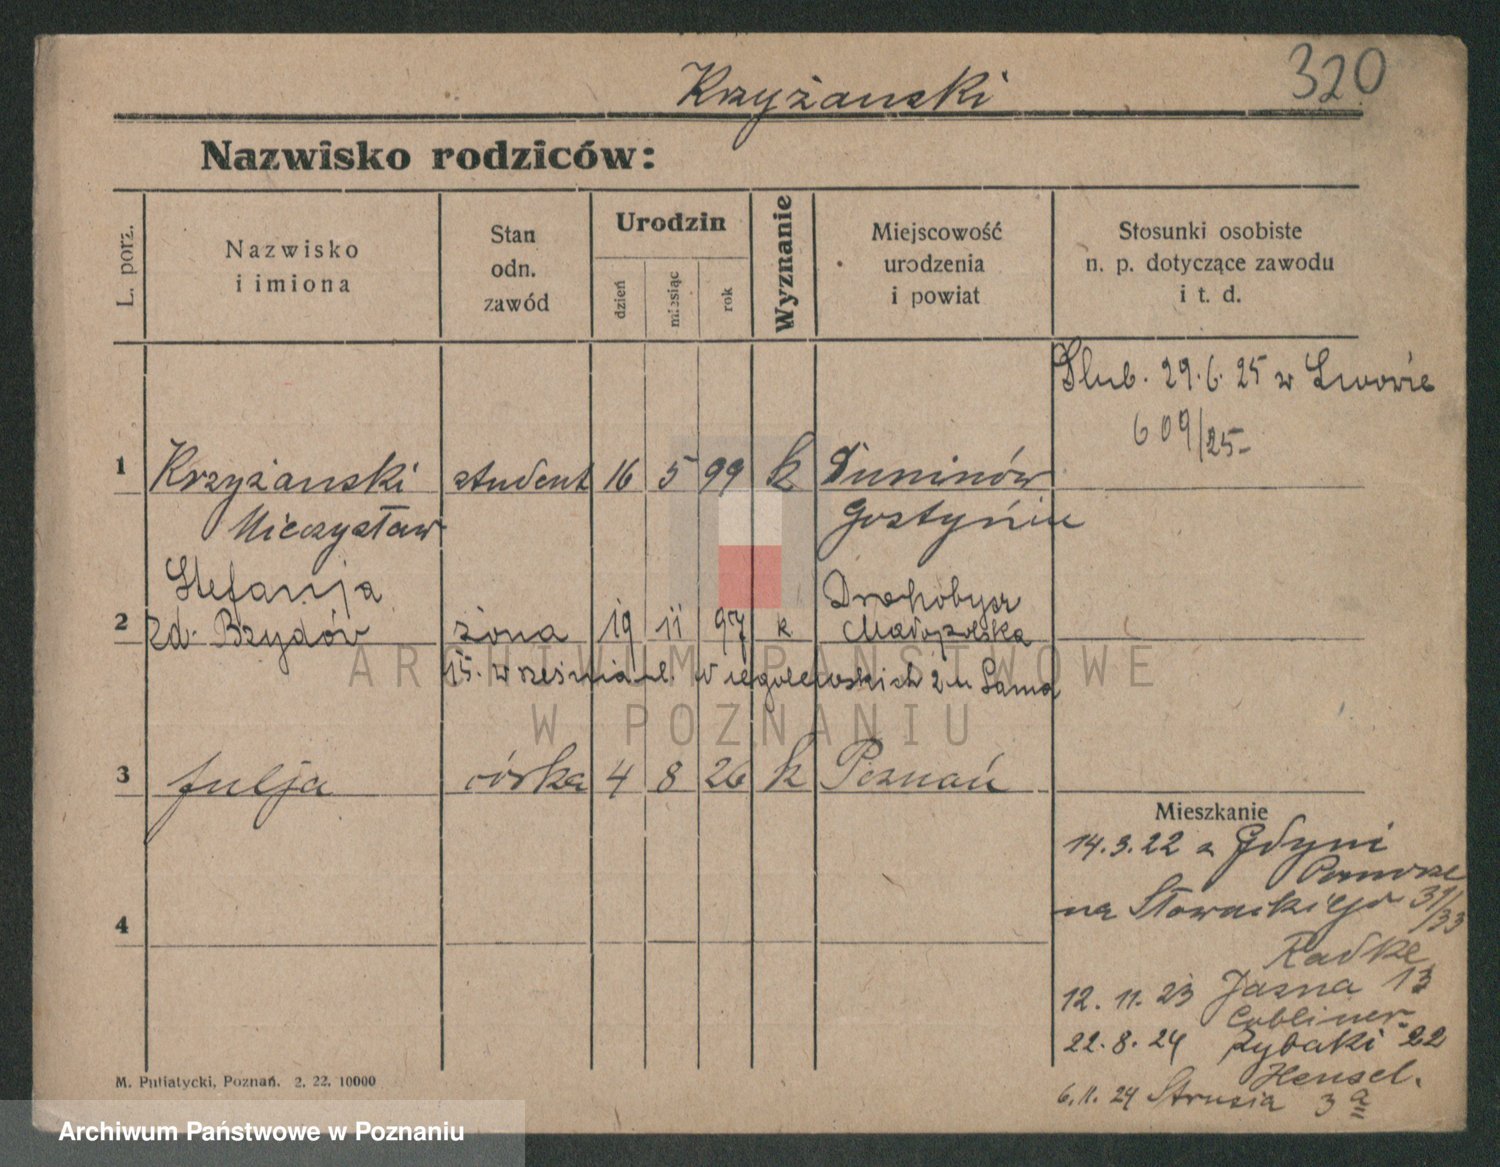 320
Krzyżanski
Nazwisko rodziców:
L. porz.
Nazwisko
i imiona
Stan
odn.
zawód
Urodzin
dzień
miesiąc
rok
Wyznanie
Miejscowość
urodzenia
i powiat
Stosunki osobiste
n. p. dotyczące zawodu
i t. d.
Ślub. 29.6.25 w Lwowie
609/25-
1 Krzyżanski student 16 5 99 k Duninów
Mieczysław Gostynin
Stefanja Drohobycz
2 zd. Brzydów żona 19 11 97 k Małopolska
15. września ul. Niegolewskich 2 u Sama
3 Julja córka 4 8 26 k Poznań
Mieszkanie
14.3.22 z Gdyni
Pomorze
na Słowackiego 31/33
Radke
12.11.23 Jasna 13
22.8.24 Rybaki 22
Hensel.
6.11.24 Strusia 3a
4
M. Putiatycki, Poznań. 2. 22. 10000
ARCHIWUM PAŃSTWOWE
W POZNANIU
Archiwum Państwowe w Poznaniu